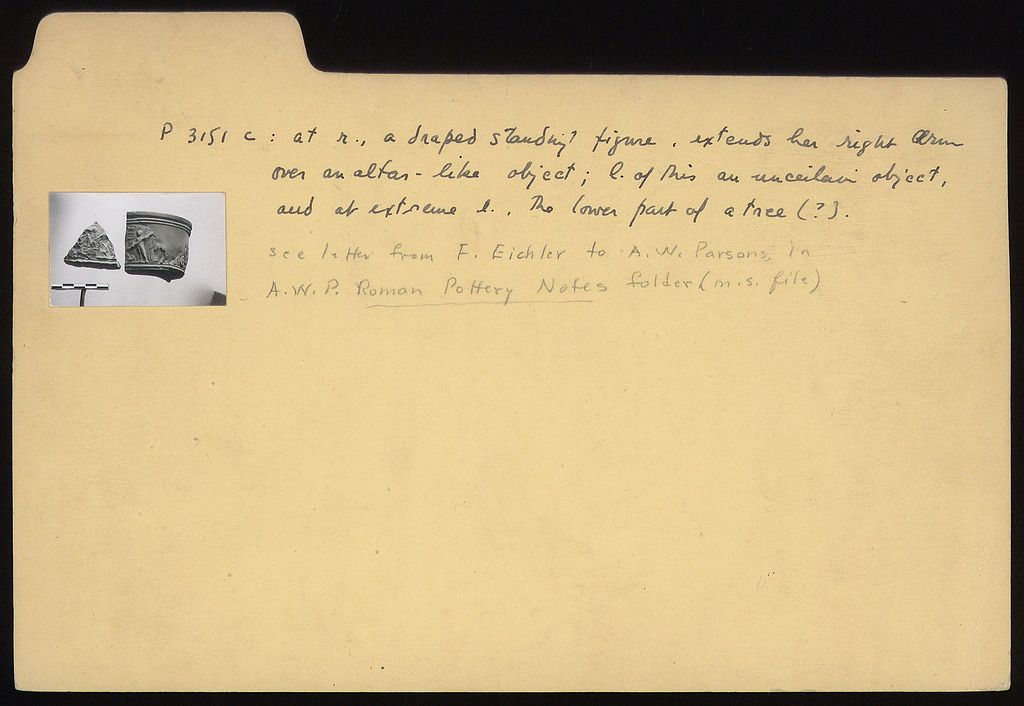 P 3151 c : at r., a draped standing figure, extends her right arm
over an altar-like object; l. of this an uncertain object,
and at extreme l., the lower part of a tree (?).
see letter from F. Eichler to A.W. Parsons, in
A.W.P. Roman Pottery Notes folder (m.s. file)